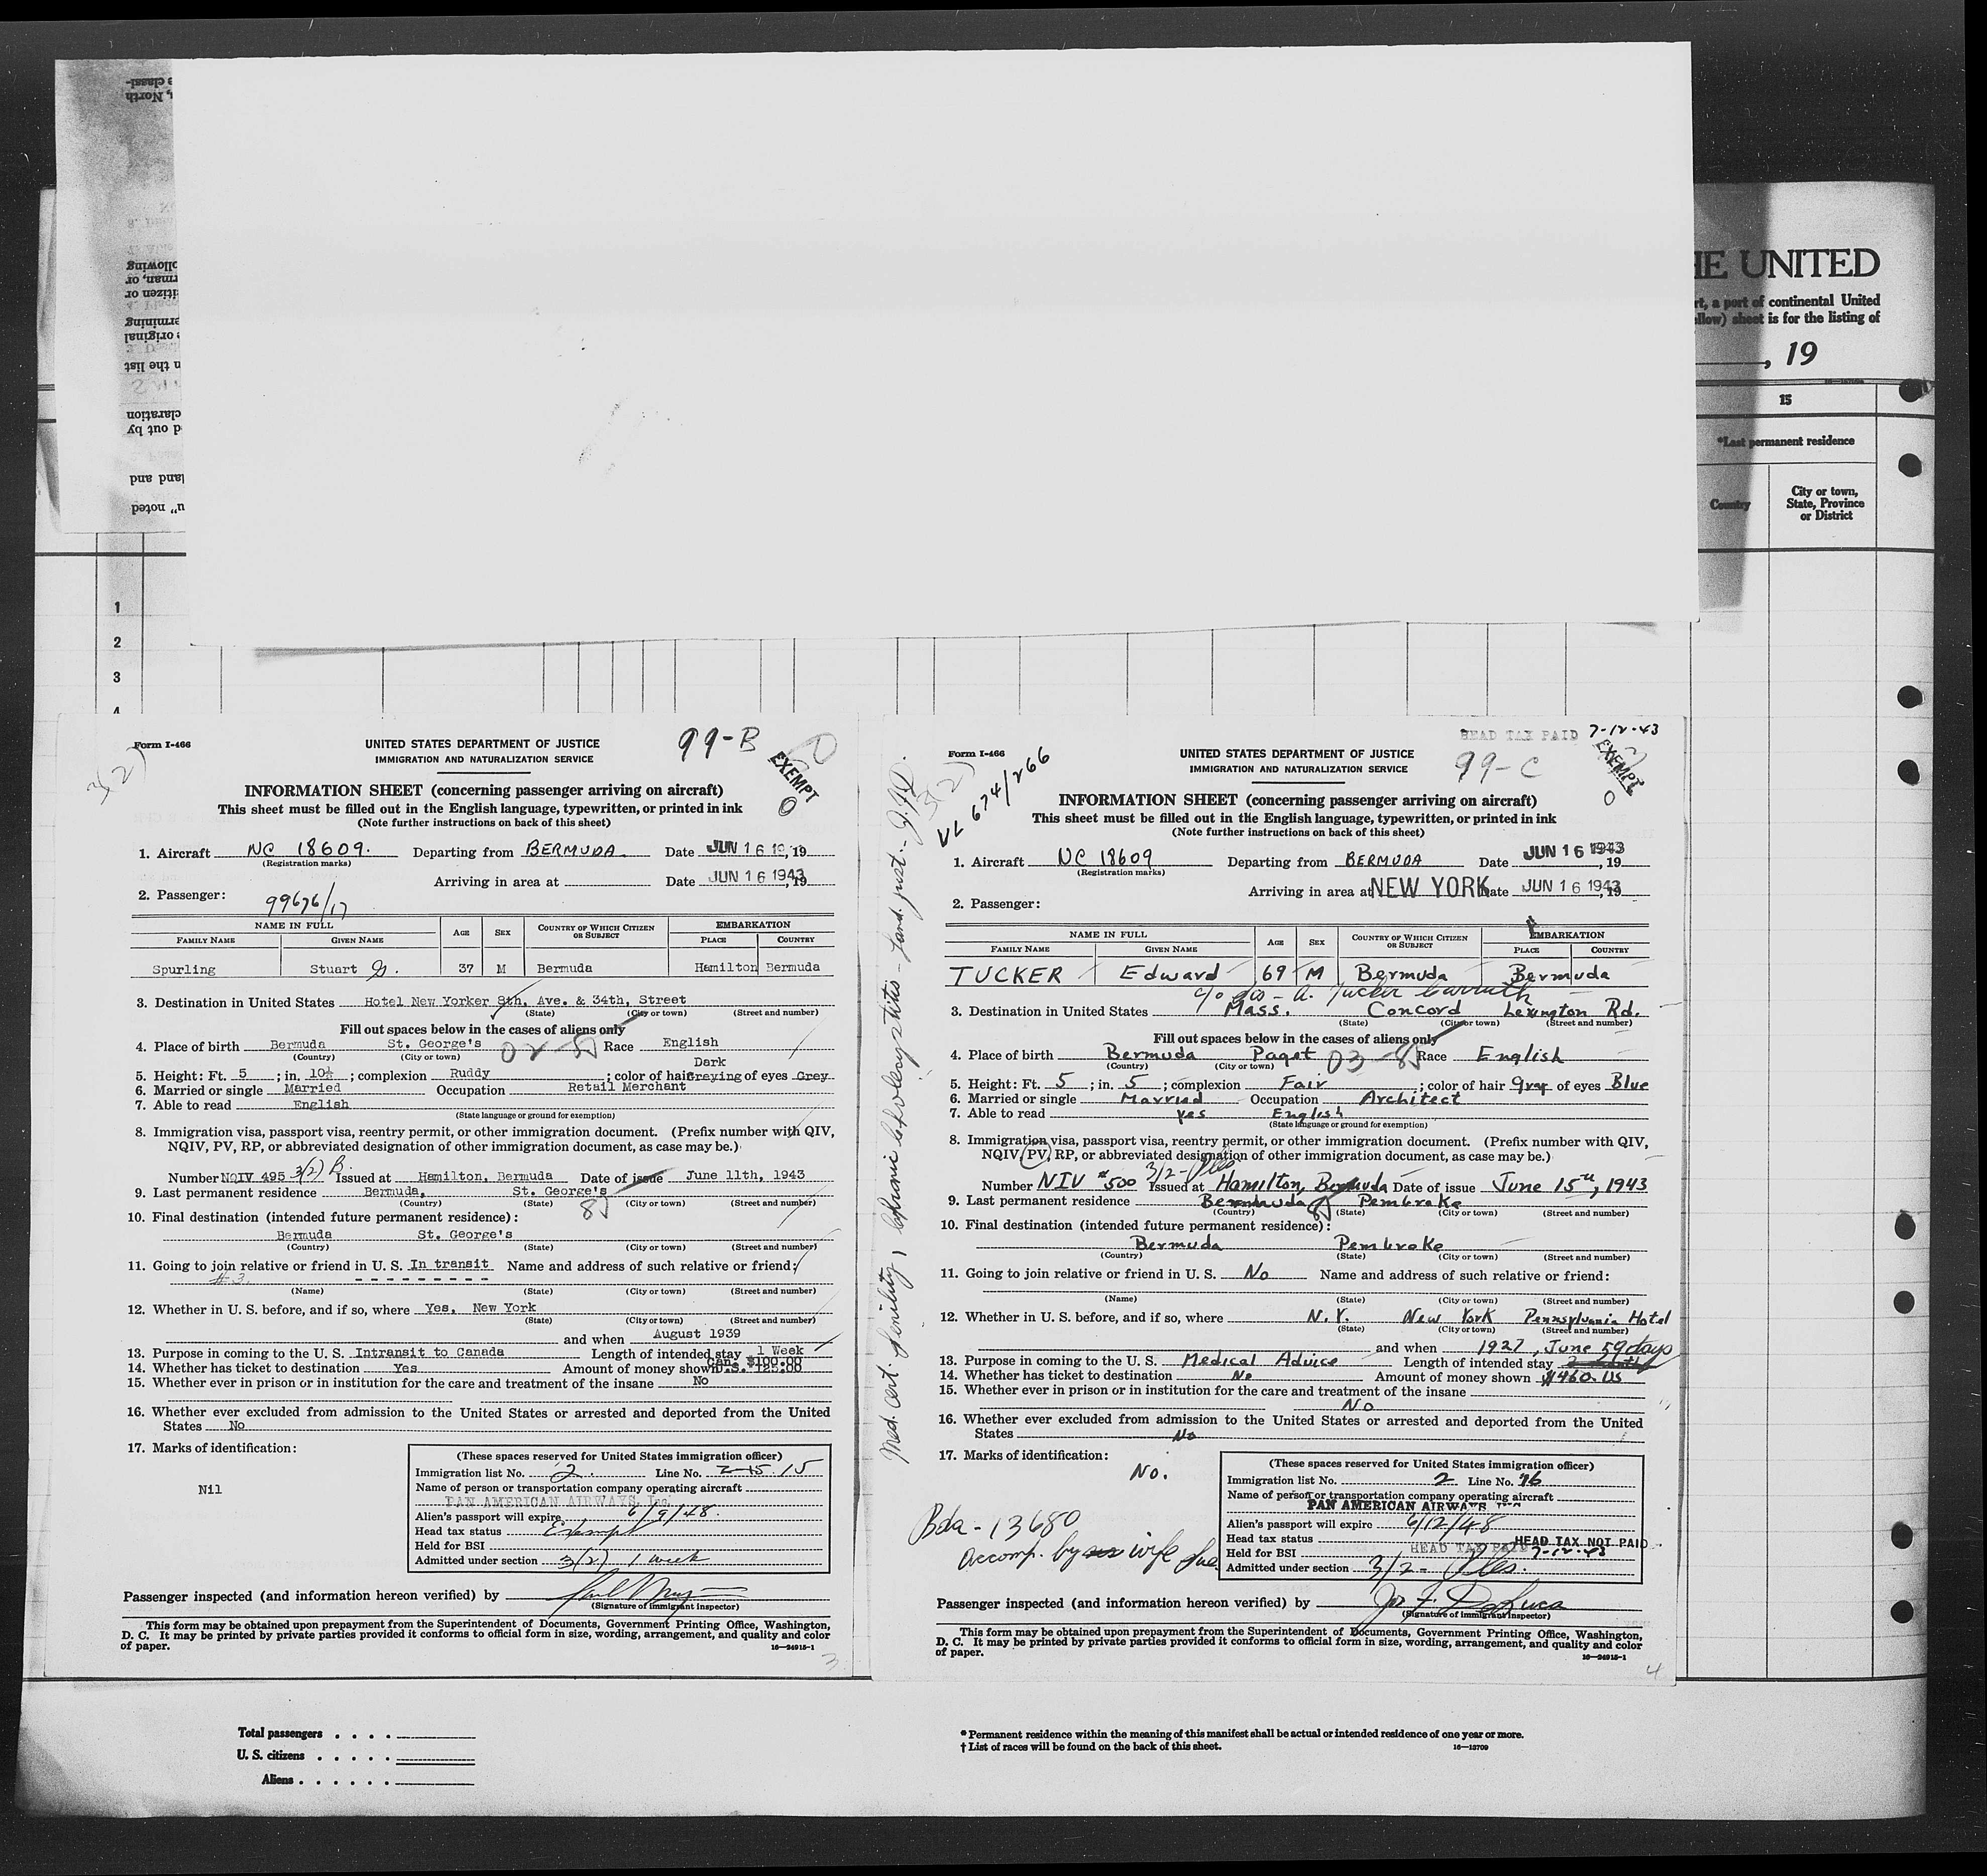 HE UNITED
rt, a port of continental United
llow) sheet is for the listing of
, 19
15
*Last permanent residence
Country
City or town,
State, Province
or District
1
2
3
4
Form I-466
3(2)
UNITED STATES DEPARTMENT OF JUSTICE
IMMIGRATION AND NATURALIZATION SERVICE
99-B
EXEMPT
0
INFORMATION SHEET (concerning passenger arriving on aircraft)
This sheet must be filled out in the English language, typewritten, or printed in ink
(Note further instructions on back of this sheet)
1. Aircraft NC 18609. Departing from BERMUDA Date JUN 16 19, 19
(Registration marks)
Arriving in area at Date JUN 16 1943, 19
2. Passenger: 99676/17
NAME IN FULL AGE SEX COUNTRY OF WHICH CITIZEN OR SUBJECT EMBARKATION
FAMILY NAME GIVEN NAME PLACE COUNTRY
Spurling Stuart G. 37 M Bermuda Hamilton Bermuda
3. Destination in United States Hotel New Yorker 8th, Ave. & 34th, Street
(State) (City or town) (Street and number)
Fill out spaces below in the cases of aliens only
4. Place of birth Bermuda St. George's Race English
(Country) (City or town)
Dark
5. Height: Ft. 5 ; in. 10½ ; complexion Ruddy ; color of hair Graying of eyes Grey
6. Married or single Married Occupation Retail Merchant
7. Able to read English
(State language or ground for exemption)
8. Immigration visa, passport visa, reentry permit, or other immigration document. (Prefix number with QIV,
NQIV, PV, RP, or abbreviated designation of other immigration document, as case may be.)
Number NQIV 495 3(2) B. Issued at Hamilton, Bermuda Date of issue June 11th, 1943
9. Last permanent residence Bermuda, St. George's
(Country) (State) (City or town) (Street and number)
10. Final destination (intended future permanent residence):
Bermuda St. George's
(Country) (State) (City or town) (Street and number)
11. Going to join relative or friend in U. S. In transit Name and address of such relative or friend:
#3 - - - - - - - - -
(Name) (State) (City or town) (Street and number)
12. Whether in U. S. before, and if so, where Yes, New York
(State) (City or town) (Street and number)
and when August 1939
13. Purpose in coming to the U. S. Intransit to Canada Length of intended stay 1 Week
14. Whether has ticket to destination Yes Amount of money shown Can. $100.00 U.S. 125.00
15. Whether ever in prison or in institution for the care and treatment of the insane No
16. Whether ever excluded from admission to the United States or arrested and deported from the United
States No
17. Marks of identification:
Nil
(These spaces reserved for United States immigration officer)
Immigration list No. 2. Line No. 2-15 15
Name of person or transportation company operating aircraft
PAN AMERICAN AIRWAYS, Inc.
Alien's passport will expire 6/9/48.
Head tax status Exempt
Held for BSI
Admitted under section 3(2) 1 week
Passenger inspected (and information hereon verified) by
(Signature of immigrant inspector)
This form may be obtained upon prepayment from the Superintendent of Documents, Government Printing Office, Washington,
D. C. It may be printed by private parties provided it conforms to official form in size, wording, arrangement, and quality and color
of paper.
16—24915-1
3
HEAD TAX PAID 7-12-43
Form I-466
3(2)
VL 674/266
UNITED STATES DEPARTMENT OF JUSTICE
IMMIGRATION AND NATURALIZATION SERVICE
99-C
EXEMPT
0
INFORMATION SHEET (concerning passenger arriving on aircraft)
This sheet must be filled out in the English language, typewritten, or printed in ink
(Note further instructions on back of this sheet)
1. Aircraft NC 18609 Departing from BERMUDA Date JUN 16 1943, 19
(Registration marks)
Arriving in area at NEW YORK Date JUN 16 1943, 19
2. Passenger:
NAME IN FULL AGE SEX COUNTRY OF WHICH CITIZEN OR SUBJECT EMBARKATION
FAMILY NAME GIVEN NAME PLACE COUNTRY
TUCKER Edward 69 M Bermuda Bermuda
c/o sis - A. Tucker Carruth
3. Destination in United States Mass. Concord Lexington Rd.
(State) (City or town) (Street and number)
Fill out spaces below in the cases of aliens only
4. Place of birth Bermuda Paget Race English
(Country) (City or town)
5. Height: Ft. 5 ; in. 5 ; complexion Fair ; color of hair gray of eyes Blue
6. Married or single Married Occupation Architect
7. Able to read yes English
(State language or ground for exemption)
8. Immigration visa, passport visa, reentry permit, or other immigration document. (Prefix number with QIV,
NQIV, PV, RP, or abbreviated designation of other immigration document, as case may be.)
Number NIV #500 Issued at Hamilton, Bermuda Date of issue June 15th, 1943
9. Last permanent residence Bermuda Pembroke
(Country) (State) (City or town) (Street and number)
10. Final destination (intended future permanent residence):
Bermuda Pembroke
(Country) (State) (City or town) (Street and number)
11. Going to join relative or friend in U. S. No Name and address of such relative or friend:
(Name) (State) (City or town) (Street and number)
12. Whether in U. S. before, and if so, where N.Y. New York Pennsylvania Hotel
(State) (City or town) (Street and number)
and when 1927, June
13. Purpose in coming to the U. S. Medical Advice Length of intended stay 59 days
14. Whether has ticket to destination No Amount of money shown $460. US
15. Whether ever in prison or in institution for the care and treatment of the insane
No
16. Whether ever excluded from admission to the United States or arrested and deported from the United
States No
17. Marks of identification:
No.
Bda-13680
accomp. by wife
(These spaces reserved for United States immigration officer)
Immigration list No. 2 Line No. 16
Name of person or transportation company operating aircraft
PAN AMERICAN AIRWAYS
Alien's passport will expire 6/12/48
Head tax status HEAD TAX NOT PAID
Held for BSI HEAD TAX PAID 7-12-43
Admitted under section 3/2-
Passenger inspected (and information hereon verified) by Jos F. DeLuca
(Signature of immigrant inspector)
This form may be obtained upon prepayment from the Superintendent of Documents, Government Printing Office, Washington,
D. C. It may be printed by private parties provided it conforms to official form in size, wording, arrangement, and quality and color
of paper.
16—24915-1
4
Total passengers . . . .
U. S. citizens . . . . .
Aliens . . . . . .
* Permanent residence within the meaning of this manifest shall be actual or intended residence of one year or more.
† List of races will be found on the back of this sheet.
16—13709